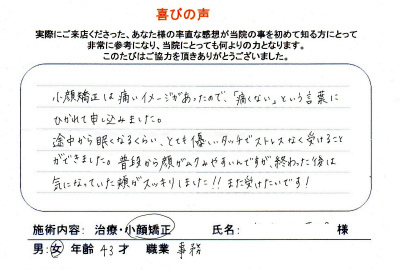 喜びの声
実際にご来店くださった、あなた様の率直な感想が当院の事を初めて知る方にとって
非常に参考になり、当院にとっても何よりの力となります。
このたびはご協力を頂きありがとうございました。
小顔矯正は痛いイメージがあったので、「痛くない」という言葉に
ひかれて申し込みました。
途中から眠くなるくらい、とても優しいタッチでストレスなく受けること
ができました。普段から顔がムクみやすいんですが、終わった後は
気になっていた頬がスッキリしました!!また受けたいです!
施術内容: 治療・小顔矯正 氏名: 様
男・女 年齢 43 才 職業 事務